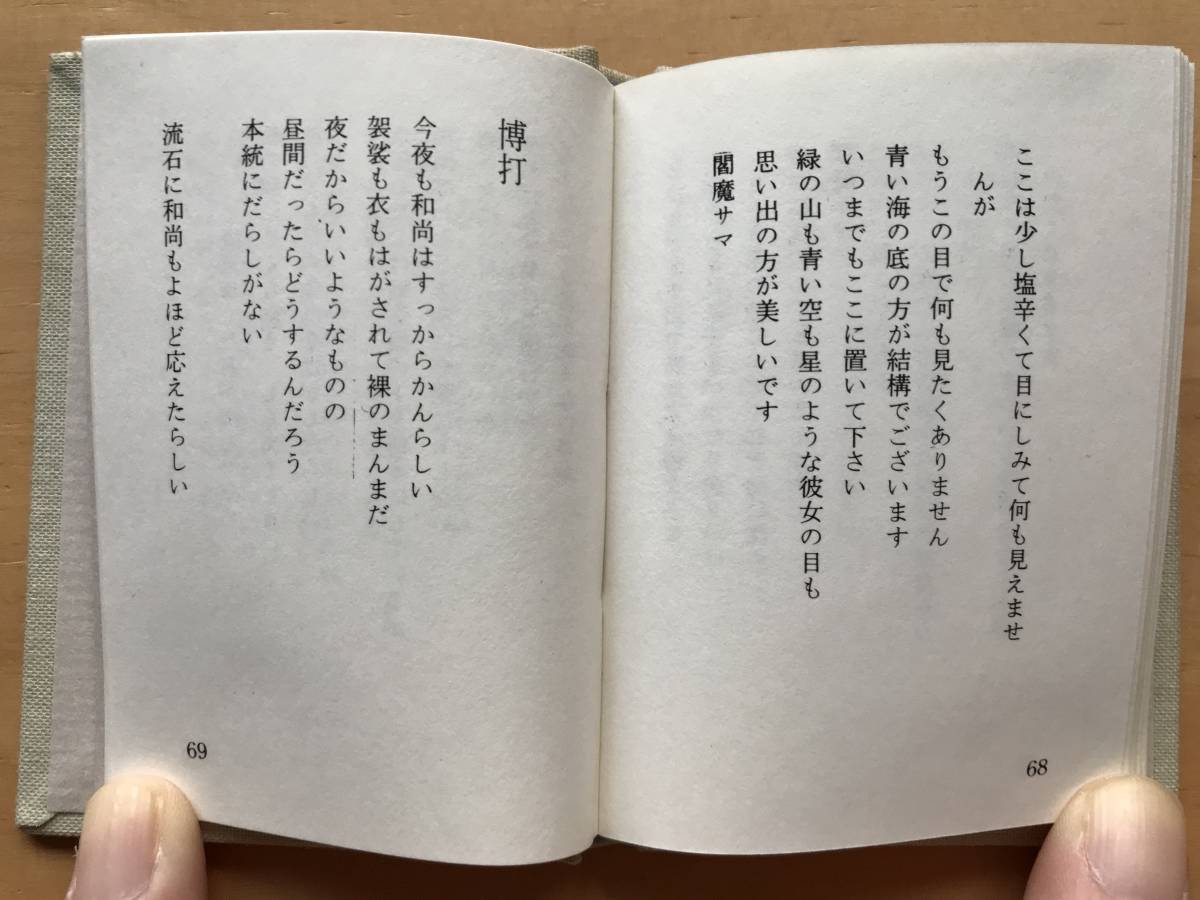 ここは少し塩辛くて目にしみて何も見えませ
んが
もうこの目で何も見たくありません
青い海の底の方が結構でございます
いつまでもここに置いて下さい
緑の山も青い空も星のような彼女の目も
思い出の方が美しいです
閻魔サマ
68
博打
今夜も和尚はすっからかんらしい
袈裟も衣もはがされて裸のまんまだ
夜だからいいようなものの
昼間だったらどうするんだろう
本統にだらしがない
流石に和尚もよほど応えたらしい
69